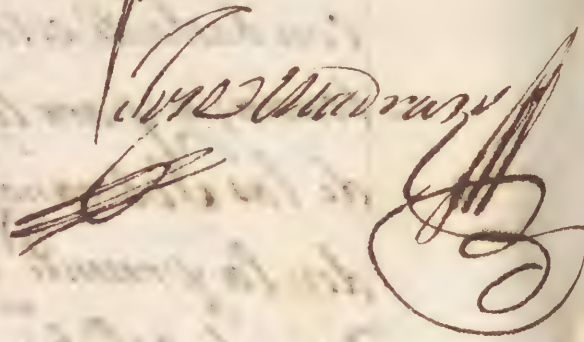 Jose Madrazo